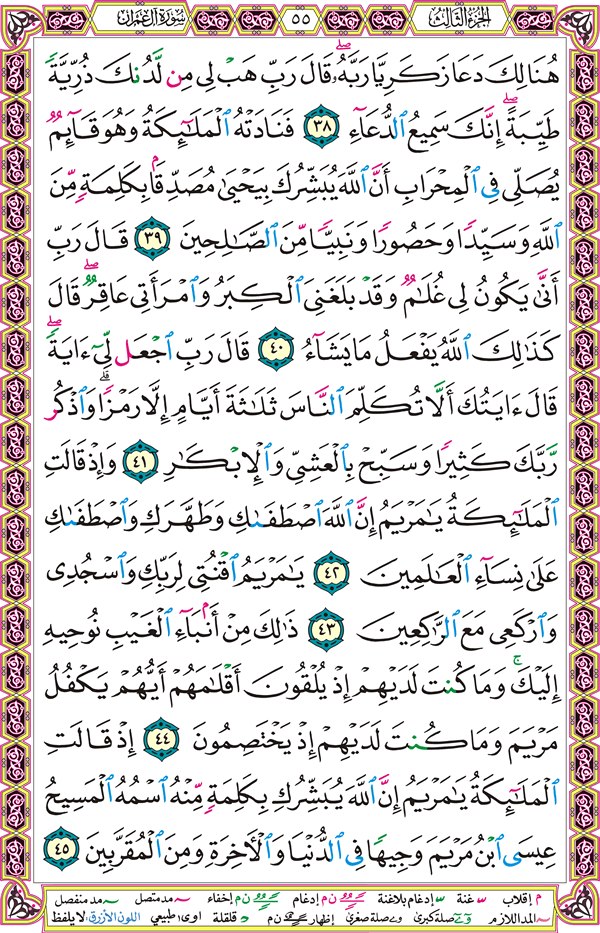 الجزء الثالث
٥٥
سورة آل عمران
هُنَالِكَ دَعَا زَكَرِيَّا رَبَّهُۥ ۖ قَالَ رَبِّ هَبْ لِى مِن لَّدُنكَ ذُرِّيَّةً
طَيِّبَةً ۖ إِنَّكَ سَمِيعُ ٱلدُّعَآءِ ٣٨ فَنَادَتْهُ ٱلْمَلَـٰٓئِكَةُ وَهُوَ قَآئِمٌ
يُصَلِّى فِى ٱلْمِحْرَابِ أَنَّ ٱللَّهَ يُبَشِّرُكَ بِيَحْيَىٰ مُصَدِّقًۢا بِكَلِمَةٍ مِّنَ
ٱللَّهِ وَسَيِّدًا وَحَصُورًا وَنَبِيًّا مِّنَ ٱلصَّـٰلِحِينَ ٣٩ قَالَ رَبِّ
أَنَّىٰ يَكُونُ لِى غُلَـٰمٌ وَقَدْ بَلَغَنِىَ ٱلْكِبَرُ وَٱمْرَأَتِى عَاقِرٌ ۖ قَالَ
كَذَٰلِكَ ٱللَّهُ يَفْعَلُ مَا يَشَآءُ ٤٠ قَالَ رَبِّ ٱجْعَل لِّىٓ ءَايَةً ۖ
قَالَ ءَايَتُكَ أَلَّا تُكَلِّمَ ٱلنَّاسَ ثَلَـٰثَةَ أَيَّامٍ إِلَّا رَمْزًا ۗ وَٱذْكُر
رَّبَّكَ كَثِيرًا وَسَبِّحْ بِٱلْعَشِىِّ وَٱلْإِبْكَـٰرِ ٤١ وَإِذْ قَالَتِ
ٱلْمَلَـٰٓئِكَةُ يَـٰمَرْيَمُ إِنَّ ٱللَّهَ ٱصْطَفَىٰكِ وَطَهَّرَكِ وَٱصْطَفَىٰكِ
عَلَىٰ نِسَآءِ ٱلْعَـٰلَمِينَ ٤٢ يَـٰمَرْيَمُ ٱقْنُتِى لِرَبِّكِ وَٱسْجُدِى
وَٱرْكَعِى مَعَ ٱلرَّٰكِعِينَ ٤٣ ذَٰلِكَ مِنْ أَنۢبَآءِ ٱلْغَيْبِ نُوحِيهِ
إِلَيْكَ ۚ وَمَا كُنتَ لَدَيْهِمْ إِذْ يُلْقُونَ أَقْلَـٰمَهُمْ أَيُّهُمْ يَكْفُلُ
مَرْيَمَ وَمَا كُنتَ لَدَيْهِمْ إِذْ يَخْتَصِمُونَ ٤٤ إِذْ قَالَتِ
ٱلْمَلَـٰٓئِكَةُ يَـٰمَرْيَمُ إِنَّ ٱللَّهَ يُبَشِّرُكِ بِكَلِمَةٍ مِّنْهُ ٱسْمُهُ ٱلْمَسِيحُ
عِيسَى ٱبْنُ مَرْيَمَ وَجِيهًا فِى ٱلدُّنْيَا وَٱلْـَٔاخِرَةِ وَمِنَ ٱلْمُقَرَّبِينَ ٤٥
م إقلاب غنة إدغام بلاغنة ن م إدغام ن م إخفاء مد متصل مد منفصل
المد اللازم صلة كبرى صلة صغرى إظهار ن م قلقلة اوى؛ طبيعي اللون الأزرق: لا يلفظ